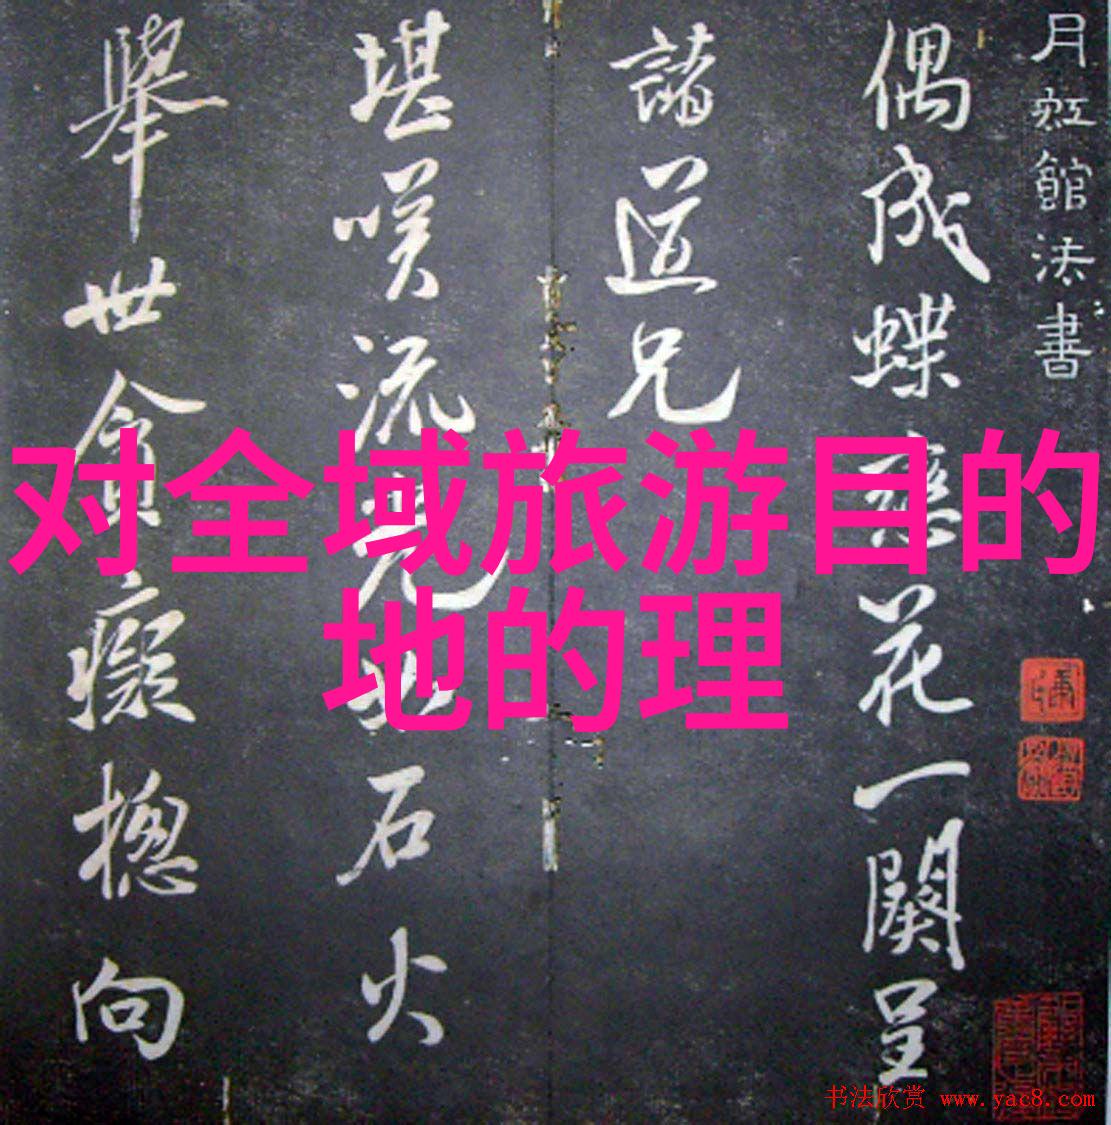 月虹館法書
偶成蝶戀花一闋呈
諸道兄
堪嘆流光如石火
舉世貪癡摠向
对全域旅游目的
地的理
书法欣赏 www.yac8.com